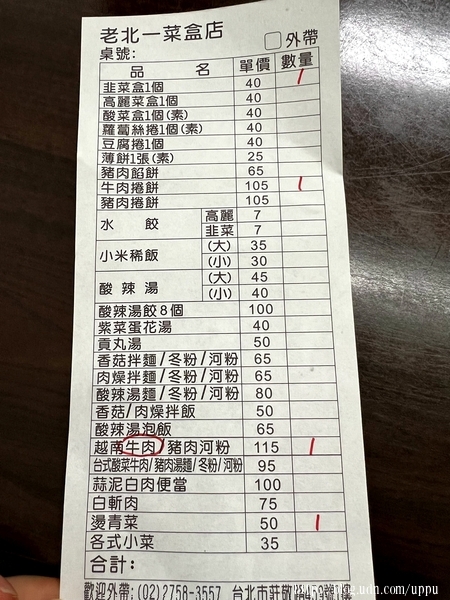 老北一菜盒店
桌號: 外帶
品 名 單價 數量
韭菜盒1個 40 1
高麗菜盒1個 40
酸菜盒1個(素) 40
蘿蔔絲捲1個(素) 40
豆腐捲1個 40
薄餅1張(素) 25
豬肉餡餅 65
牛肉捲餅 105 1
豬肉捲餅 105
水 餃 高麗 7
韭菜 7
小米稀飯 (大) 35
(小) 30
酸 辣 湯 (大) 45
(小) 40
酸辣湯餃8個 100
紫菜蛋花湯 40
貢丸湯 50
香菇拌麵/冬粉/河粉 65
肉燥拌麵/冬粉/河粉 65
酸辣湯麵/冬粉/河粉 80
香菇/肉燥拌飯 50
酸辣湯泡飯 65
越南牛肉/豬肉河粉 115 1
台式酸菜牛肉/豬肉湯麵/冬粉/河粉 95
蒜泥白肉便當 100
白斬肉 75
燙青菜 50 1
各式小菜 35
合計:
歡迎外帶:(02)2758-3557 台北市莊敬路
udn.com/uppu